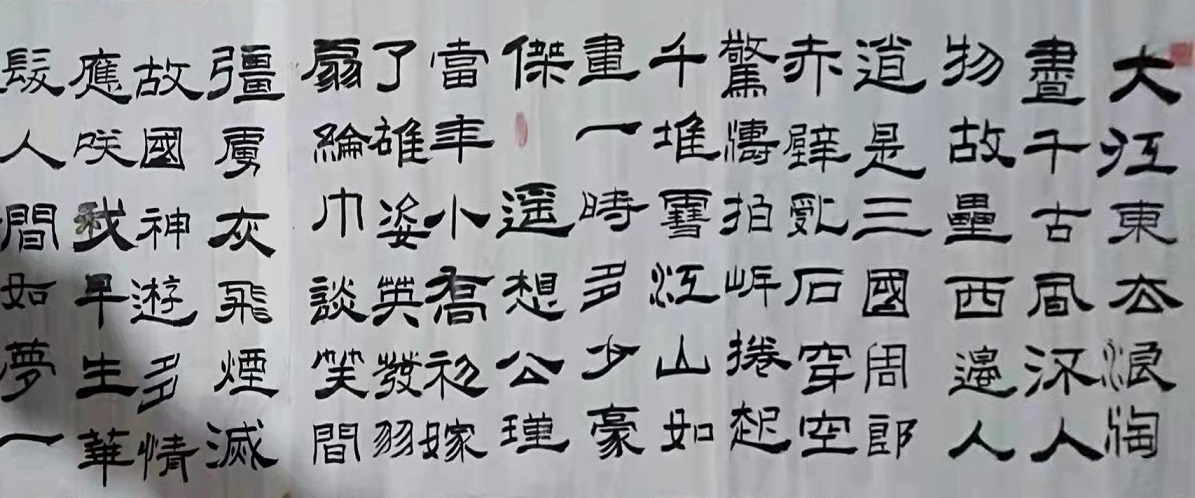 大江東去浪淘
盡千古風流人
物故壘西邊人
道是三國周郎
赤壁亂石穿空
驚濤拍岸捲起
千堆雪江山如
畫一時多少豪
傑遥想公瑾
當年小喬初嫁
了雄姿英發羽
扇綸巾談笑間
彊虜灰飛煙滅
故國神遊多情
應咲我早生華
髮人間如夢一